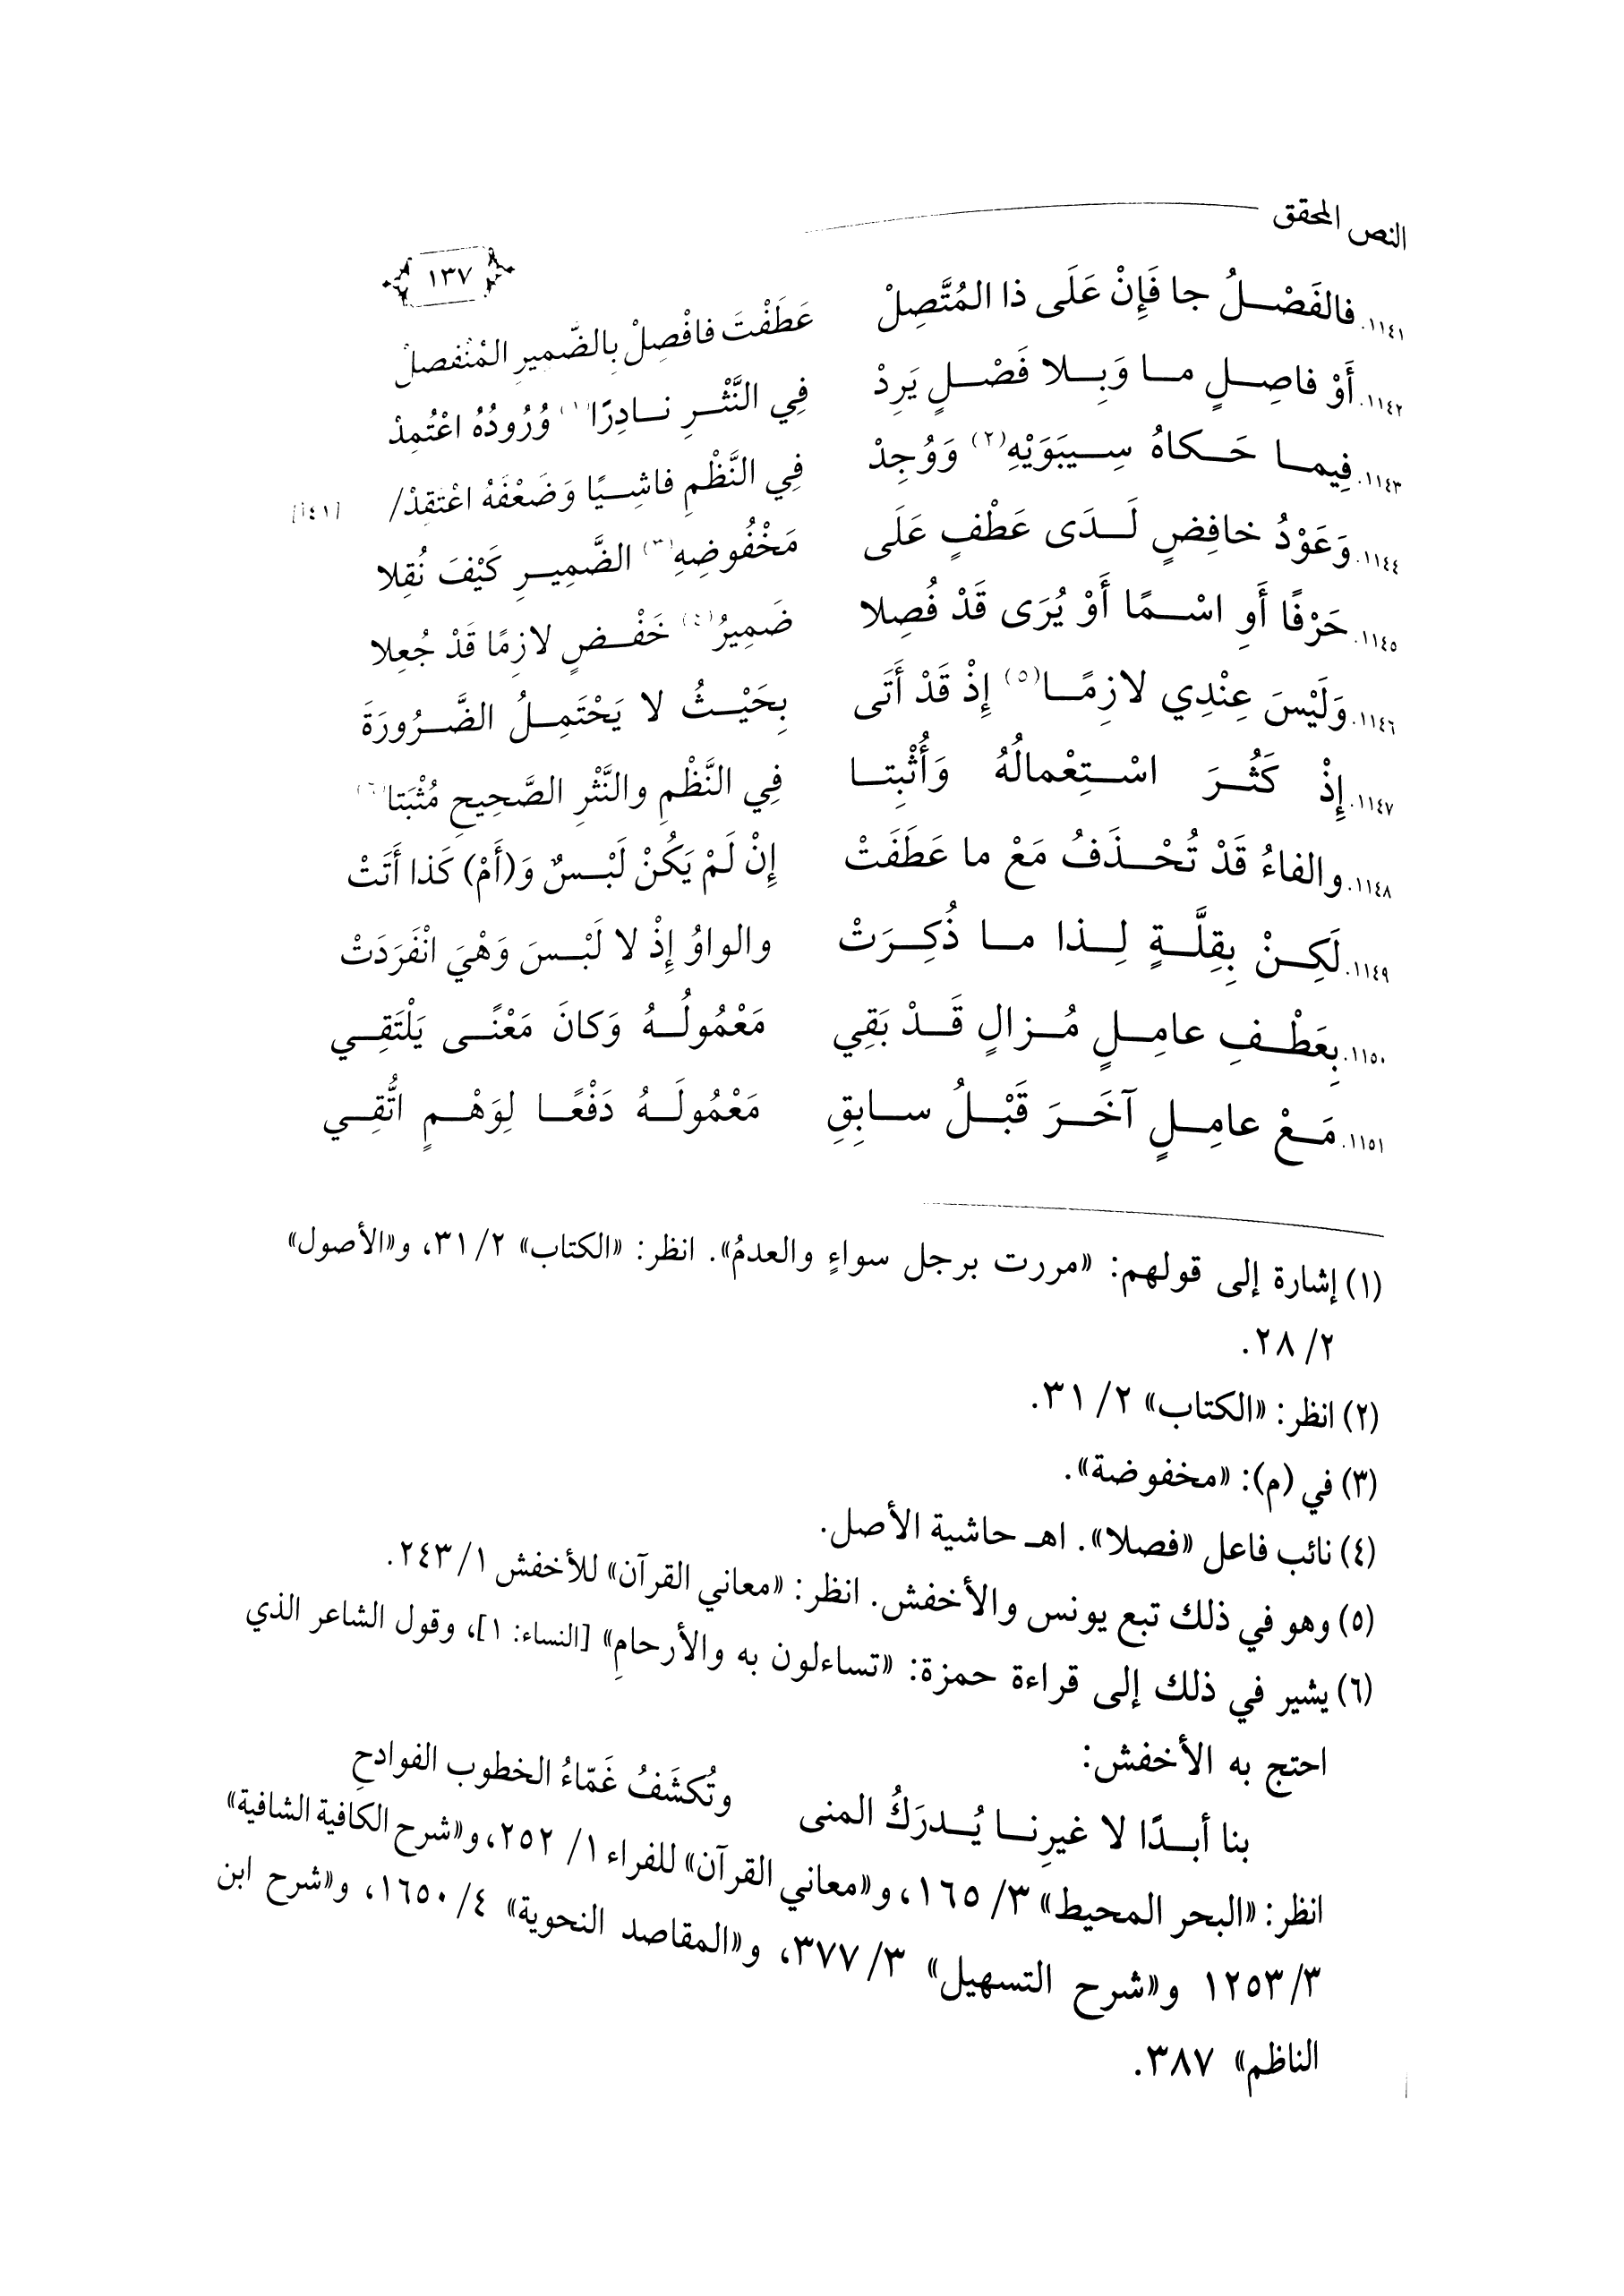 النص المحقق
١٣٧
١١٤١. فالفَصْلُ جا فَإِنْ عَلَى ذا المُتَّصِلْ عَطَفْتَ فافْصِلْ بِالضَّمِيرِ المُنْفَصِلْ
١١٤٢. أَوْ فاصِلٍ ما وَبِلا فَصْلٍ يَرِدْ فِي النَّثْرِ نادِرًا(١) وُرُودُهُ اعْتُمِدْ
١١٤٣. فِيما حَكاهُ سِيبَوَيْهِ(٢) وَوُجِدْ فِي النَّظْمِ فاشِيًا وَضَعْفَهُ اعْتَقِدْ/ [١٤١أ]
١١٤٤. وَعَوْدُ خافِضٍ لَدَى عَطْفٍ عَلَى مَخْفُوضِهِ(٣) الضَّمِيرِ كَيْفَ نُقِلا
١١٤٥. حَرْفًا أَوِ اسْمًا أَوْ يُرَى قَدْ فُصِلا ضَمِيرُ(٤) خَفْضٍ لازِمًا قَدْ جُعِلا
١١٤٦. وَلَيْسَ عِنْدِي لازِمًا(٥) إِذْ قَدْ أَتَى بِحَيْثُ لا يَحْتَمِلُ الضَّرُورَةَ
١١٤٧. إِذْ كَثُرَ اسْتِعْمالُهُ وَأُثْبِتا فِي النَّظْمِ والنَّثْرِ الصَّحِيحِ مُثْبَتا(٦)
١١٤٨. والفاءُ قَدْ تُحْذَفُ مَعْ ما عَطَفَتْ إِنْ لَمْ يَكُنْ لَبْسٌ وَ(أَمْ) كَذا أَتَتْ
١١٤٩. لَكِنْ بِقِلَّةٍ لِذا ما ذُكِرَتْ والواوُ إِذْ لا لَبْسَ وَهْيَ انْفَرَدَتْ
١١٥٠. بِعَطْفِ عامِلٍ مُزالٍ قَدْ بَقِي مَعْمُولُهُ وَكانَ مَعْنًى يَلْتَقِي
١١٥١. مَعْ عامِلٍ آخَرَ قَبْلُ سابِقِ مَعْمُولَهُ دَفْعًا لِوَهْمٍ اتُّقِي
(١) إشارة إلى قولهم: «مررت برجل سواءٍ والعدمُ». انظر: «الكتاب» ٢/ ٣١، و«الأصول»
٢/ ٢٨.
(٢) انظر: «الكتاب» ٢/ ٣١.
(٣) في (م): «مخفوضة».
(٤) نائب فاعل «فصلا». اهـ حاشية الأصل.
(٥) وهو في ذلك تبع يونس والأخفش. انظر: «معاني القرآن» للأخفش ١/ ٢٤٣.
(٦) يشير في ذلك إلى قراءة حمزة: «تساءلون به والأرحامِ» [النساء: ١]، وقول الشاعر الذي
احتج به الأخفش:
بنا أبدًا لا غيرِنا يُدرَكُ المنى وتُكشَفُ غَمّاءُ الخطوب الفوادحِ
انظر: «البحر المحيط» ٣/ ١٦٥، و«معاني القرآن» للفراء ١/ ٢٥٢، و«شرح الكافية الشافية»
٣/ ١٢٥٣ و«شرح التسهيل» ٣/ ٣٧٧، و«المقاصد النحوية» ٤/ ١٦٥٠، و«شرح ابن
الناظم» ٣٨٧.